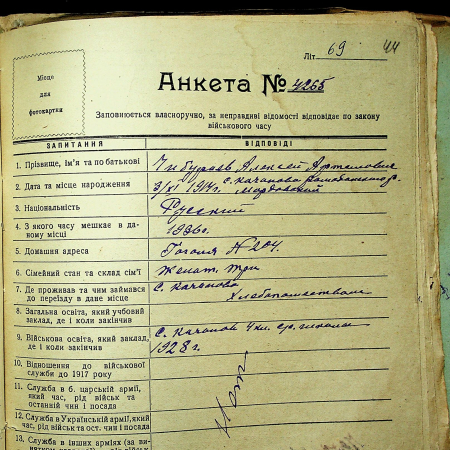 Літ. 69 44
Місце
для
фотокартки
Анкета № 4265
Заповнюється власноручно, за неправдиві відомості відповідає по закону
військового часу
ЗАПИТАННЯ ВІДПОВІДІ
1. Прізвище, ім'я та по батькові Алексей
2. Дата та місце народження 3/XI 1914г. с. Качанова
3. Національність Русский
4. З якого часу мешкає в да-
ному місці 1936г.
5. Домашня адреса Гоголя № 204.
6. Сімейний стан та склад сім'ї Женат. три
7. Де проживав та чим займався
до переїзду в дане місце с. Качанова
Хлебопашеством
8. Загальна освіта, який учбовий
заклад, де і коли закінчив с. Качанов 4 кл. ср. школы
9. Військова освіта, який заклад,
де і коли закінчив 1928 г.
10. Відношення до військової
служби до 1917 року
11. Служба в б. царській армії,
який час, рід військ та
останній чин і посада
12. Служба в Українській армії, який
час, рід військ та ост. чин і посада
13. Служба в інших арміях (за ви-
Нет